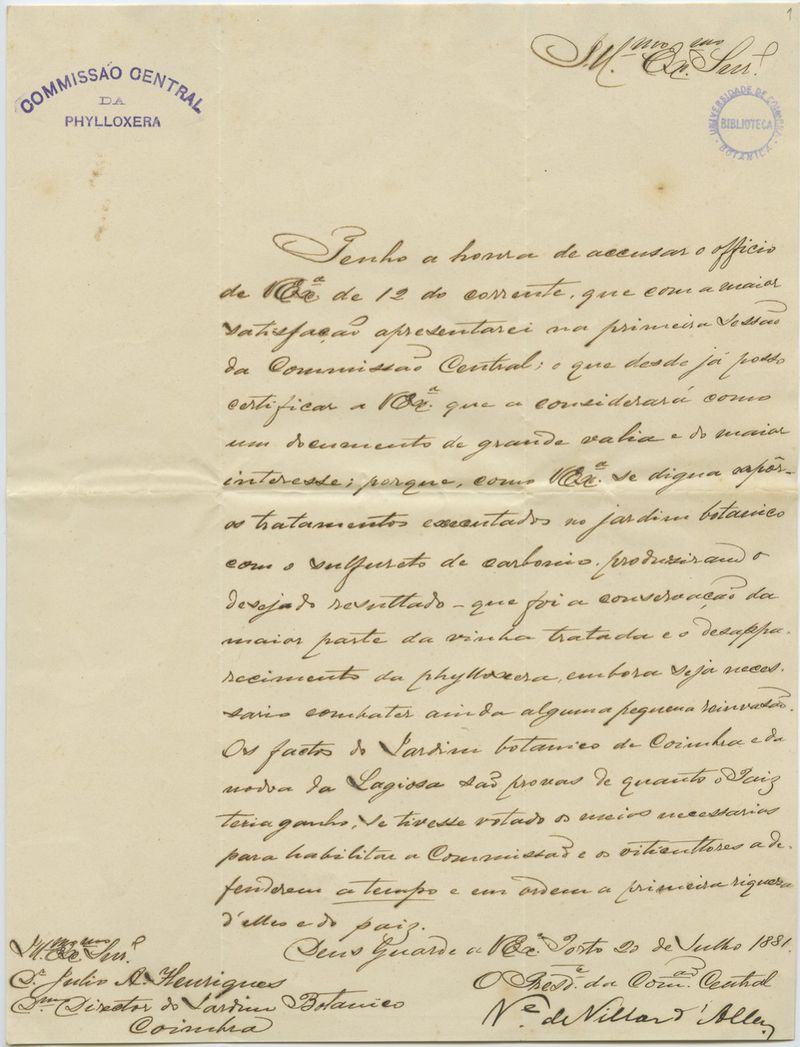 1
COMMISSÃO CENTRAL
DA
PHYLLOXERA
Ill.mo Ex.mo Snr.
UNIVERSIDADE DE COIMBRA
BIBLIOTECA
BOTANICA
Tenho a honra de accusar o officio
de V Ex.a de 12 do corrente, que com a maior
satisfação apresentarei na primeira sessão
da Commissão Central; o que desde já posso
certificar a V Ex.a que a considerará como
um documento de grande valia e do maior
interesse; porque, como V Ex.a se digna expôr-
os tratamentos executados no jardim botanico
com o sulfureto de carbonio, produziram o
desejado resultado - que foi a conservação da
maior parte da vinha tratada e o desappa-
recimento da phylloxera, embora seja neces-
sario combater ainda alguma pequena reinvasão.
Os factos do Jardim botanico de Coimbra e da
nodoa da Lagiosa são provas de quanto o Paiz
teria ganho, se tivesse votado os meios necessarios
para habilitar a Commissão e os viticultores a de-
fenderem a tempo e em ordem a primeira riqueza
d'elles e do paiz.
Deus Guarde a V Ex.a Porto 20 de Julho 1881.
Ill.mo Ex.mo Snr.
D.r Julio A. Henriques
D.mo Director do Jardim Botanico
Coimbra
O Presid.e da Com.ão Central
V.e de Villar d'Allen